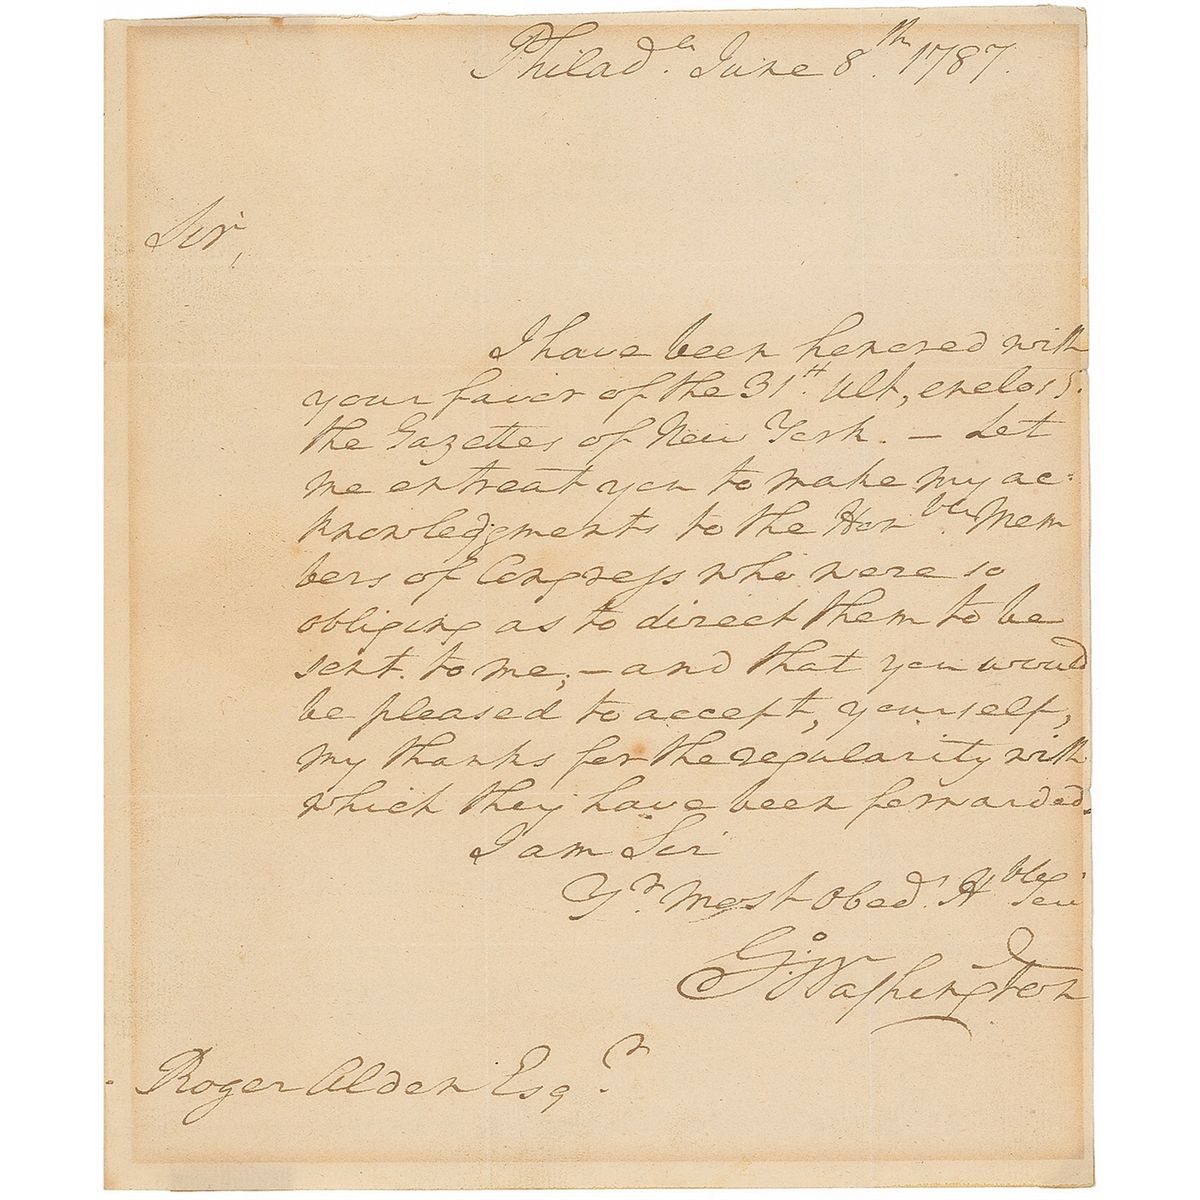 Philad.ᵃ June 8.ᵗʰ 1787.
Sir,
I have been honored with
your favor of the 31ˢᵗ. Ult, enclosᵍ.
the Gazettes of New York. — Let
me entreat you to make my ac:
knowledgments to the Honᵇˡᵉ. Mem
bers of Congress who were so
obliging as to direct them to be
sent to me, — and that you would
be pleased to accept, yourself,
my thanks for the regularity with
which they have been forwarded.
I am Sir
Yʳ. Most Obedᵗ. Hᵇˡᵉ Serv
Gᵒ: Washington
Roger Alden Esqʳ.